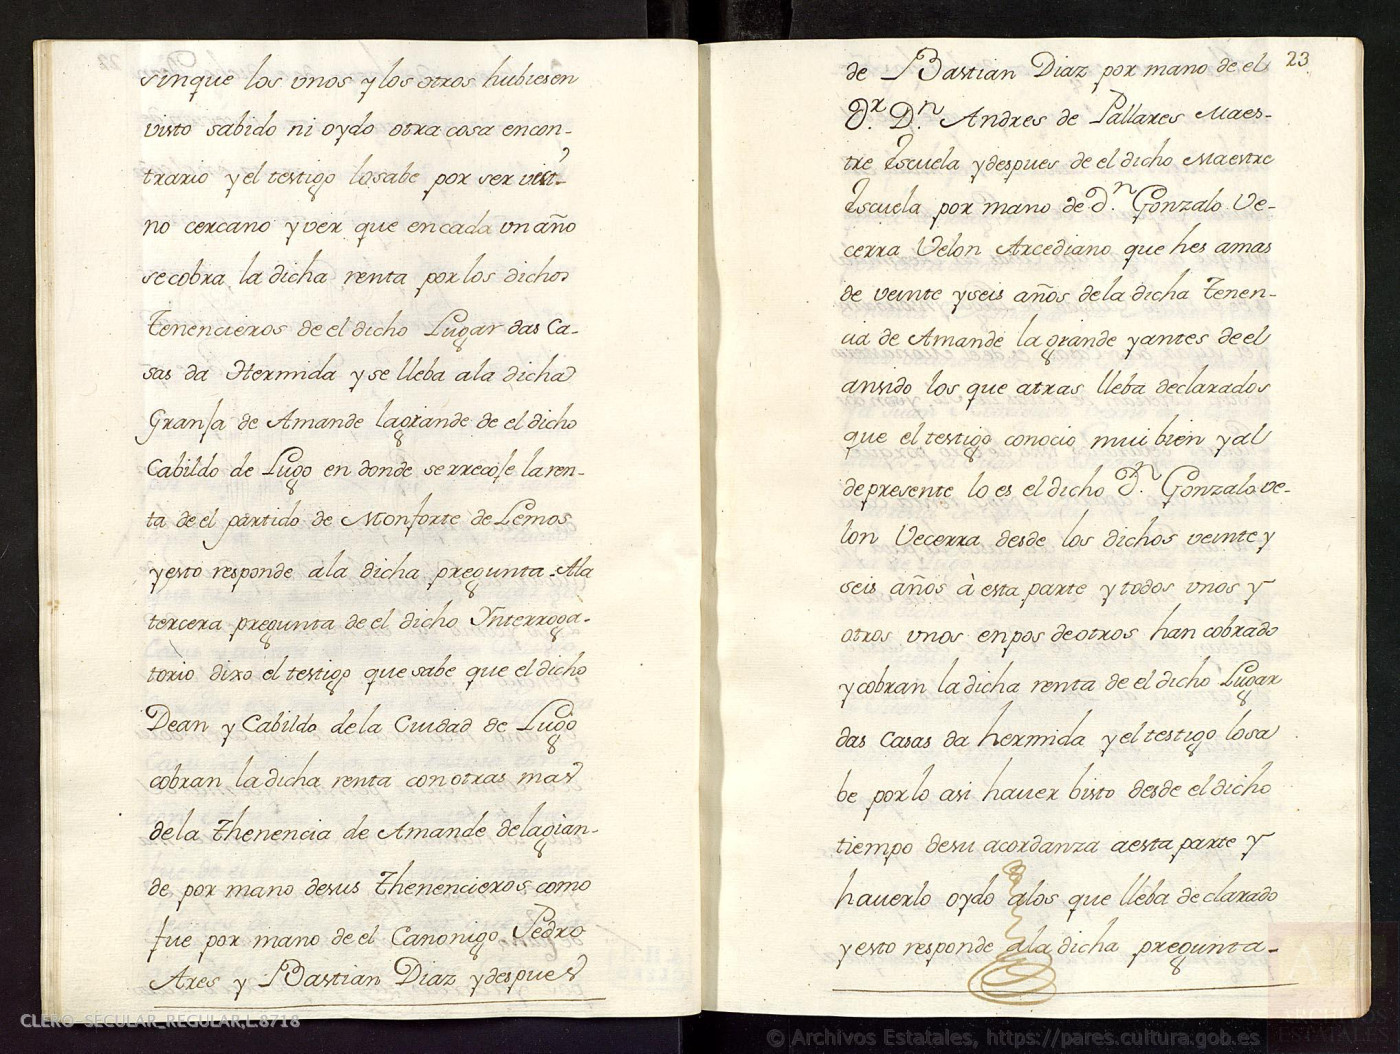 sinque los vnos y los otros hubiesen
visto sabido ni oydo otra cosa encon-
trario y el testigo lo sabe por ser veci-
no cercano y ver que encada vn año
se cobra la dicha renta por los dichos
tenencieros de el dicho Lugar das Ca-
sas da Hermida y se lleba ala dicha
Granja de Amande la grande de el dicho
Cabildo de Lugo en donde se rrecoje la ren-
ta de el partido de Monforte de Lemos
y esto responde ala dicha pregunta - Ala
tercera pregunta de el dicho Ynterroga-
torio dixo el testigo que sabe que el dicho
Dean y Cabildo de la Ciudad de Lugo
cobran la dicha renta con otras mas
de la thenencia de Amande de la gran-
de por mano de sus thenencieros como
fue por mano de el Canonigo Pedro
Ares y Bastian Diaz y despues
23
de Bastian Diaz por mano de el
Dr. Dn. Andres de Pallares Maes-
tre Escuela y despues de el dicho Maestre
Escuela por mano de Dn. Gonzalo Ve-
cerra Velon Arcediano que hes amas
de veinte y seis años de la dicha tenen-
cia de Amande la grande y antes de el
an sido los que atras lleba declarados
que el testigo conocio mui bien y al
de presente lo es el dicho Dn. Gonzalo ve-
lon Vecerra desde los dichos veinte y
seis años à esta parte y todos vnos y
otros vnos en pos de otros han cobrado
y cobran la dicha renta de el dicho Lugar
das Casas da hermida y el testigo lo sa
be por lo asi hauer bisto desde el dicho
tiempo de su acordanza aesta parte y
hauerlo oydo alos que lleba declarado
y esto responde ala dicha pregunta -
CLERO_SECULAR_REGULAR,L.8718
© Archivos Estatales, https://pares.cultura.gob.es
ARCHIVOS
ESTATALES